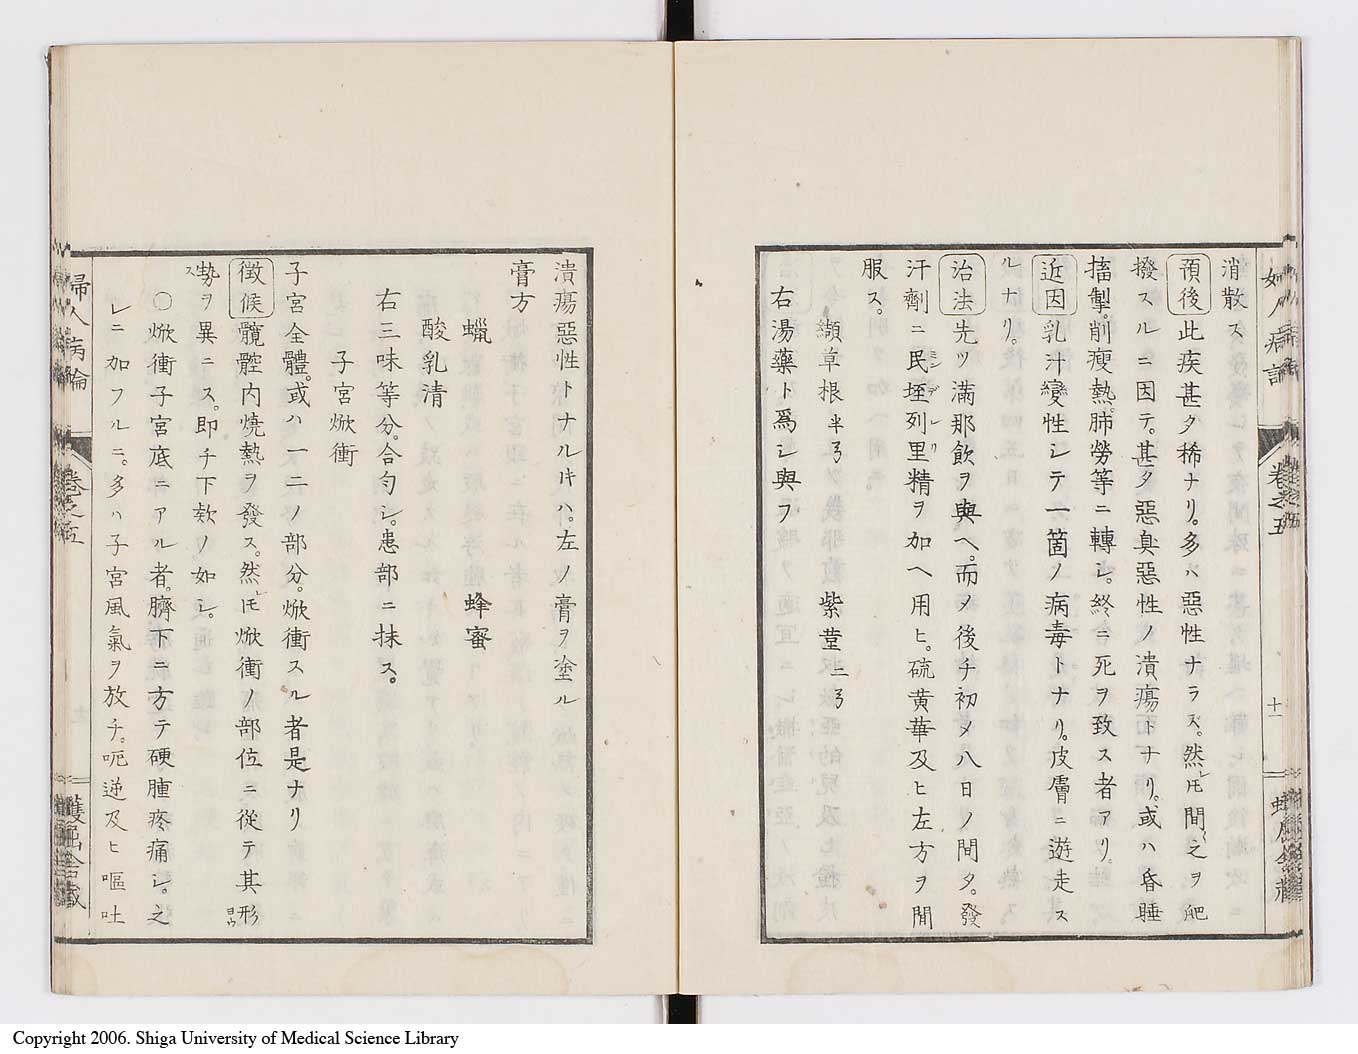 消散ス
預後 此疾甚タ稀ナリ。多ハ惡性ナラズ。然レ𪜈間之ヲ爬
撥スルニ因テ。甚タ惡臭惡性ノ潰瘍トナリ。或ハ昏睡
搐掣。削瘦熱。肺勞等ニ轉シ。終ニ死ヲ致ス者アリ。
近因 乳汁變性シテ一箇ノ病毒トナリ。皮膚ニ遊走ス
ルナリ。
治法 先ツ滿那飮ヲ與ヘ。而メ後チ初メ八日ノ間タ。發
汗劑ニ民埀列里精ヲ加ヘ用ヒ。硫黄華及ヒ左方ヲ間
服ス。
纈草根 半ヲ 紫菫 二ヲ
右湯藥ト爲シ與フ
卷之五
十一
潰瘍惡性トナル𪜈ハ。左ノ膏ヲ塗ル
膏方
蠟 蜂蜜
酸乳清
右三味等分。合匀シ。患部ニ抹ス。
子宮焮衝
子宮全體。或ハ一二ノ部分。焮衝スル者是ナリ
徴候 髖腔内燒熱ヲ發ス。然レ𪜈焮衝ノ部位ニ從テ其形
勢ヲ異ニス。即チ下欵ノ如シ。
○焮衝子宮底ニアル者。臍下ニ方テ硬腫疼痛シ。之
レニ加フルニ。多ハ子宮風氣ヲ放チ。呃逆及ヒ嘔吐
婦人病論
卷之五
Copyright 2006. Shiga University of Medical Science Library